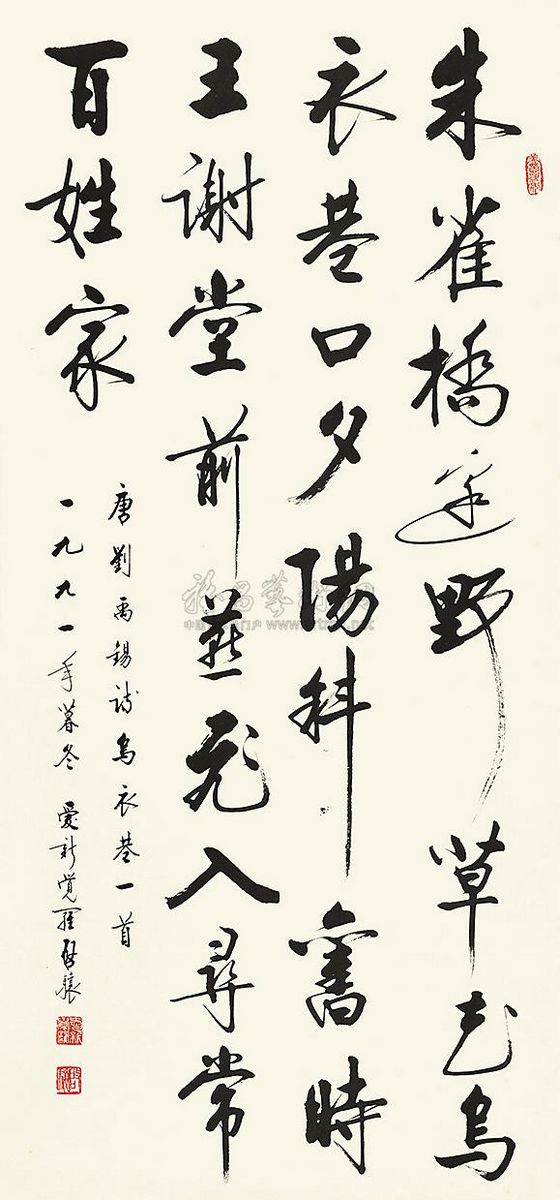 朱雀橋邊野草花烏
衣巷口夕陽斜舊時
王謝堂前燕飛入尋常
百姓家
唐劉禹錫詩烏衣巷一首
一九九一年暮冬 愛新覺羅啟驤